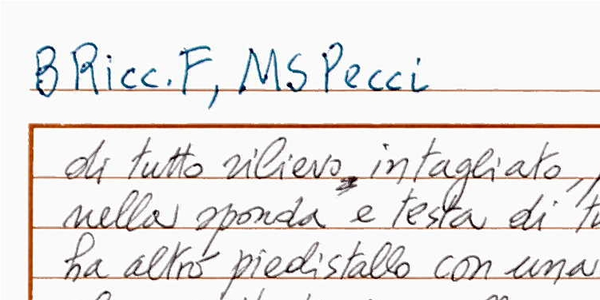 B Ricc. F, MS Pecci
di tutto rilievo, intagliato,
nella sponda e testa di
ha altro piedistallo con una